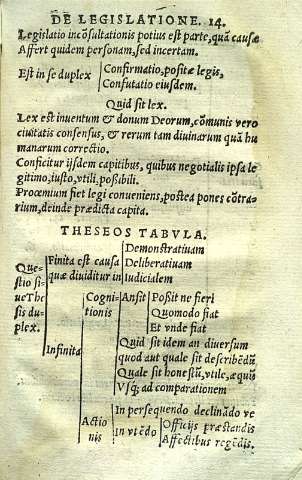 DE LEGISLATIONE. 14.
Legislatio incõsultationis potius est parte, quã causæ
Affert quidem personam, sed incertam.
Est in se duplex
Confirmatio, positæ legis,
Confutatio eiusdem.
Quid sit lex.
Lex est inuentum & donum Deorum, cõmunis vero
ciuitatis consensus, & rerum tam diuinarum quã hu
manarum correctio.
Conficitur ijsdem capitibus, quibus negotialis ipsa le
gitimo, iusto, vtili, possibili.
Proœmium fiet legi conueniens, postea pones cõtra-
rium, deinde prædicta capita.
THESEOS TABVLA.
Quæ-
stio si
ue The
sis du
plex.
Finita est causa
quæ diuiditur in
Demonstratiuam
Deliberatiuam
Iudicialem
Infinita
Cogni
tionis
An sit
Possit ne fieri
Quomodo fiat
Et vnde fiat
Quid sit idem an diuersum
quod aut quale sit describẽdũ
Quale sit honestũ, vtile, æquũ
Vsq; ad comparationem
Actio
nis
In persequendo declinãdo ve
in vtẽdo
Officijs præstandis
Affectibus regẽdis.